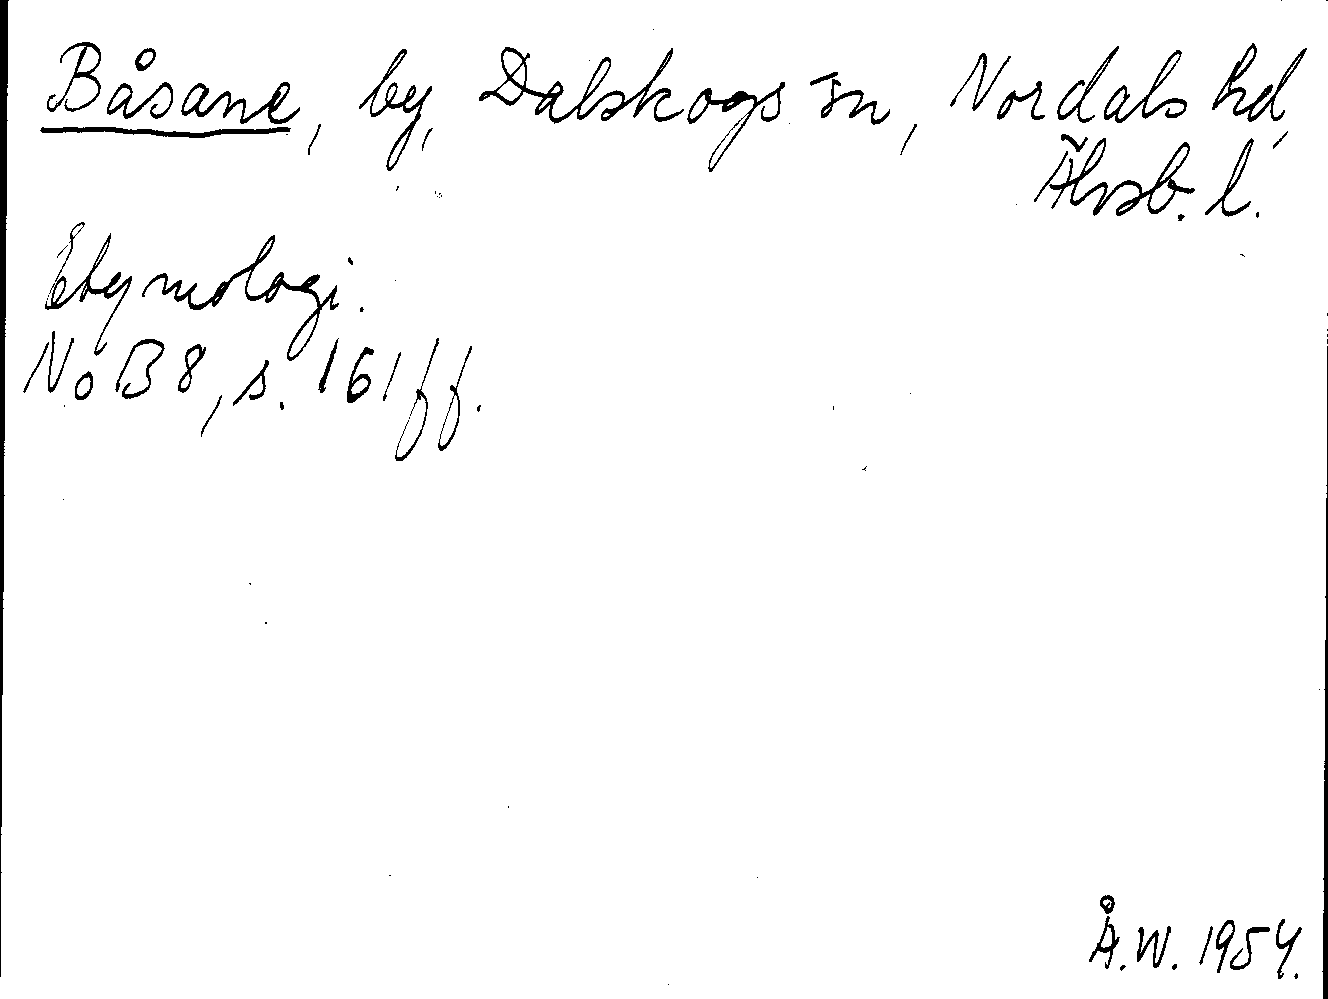 Båsane, by, Dalskogs sn, Nordals hd,
Älvsb. l.
Etymologi.
NoB 8, s. 161 ff.
Å.W. 1954.